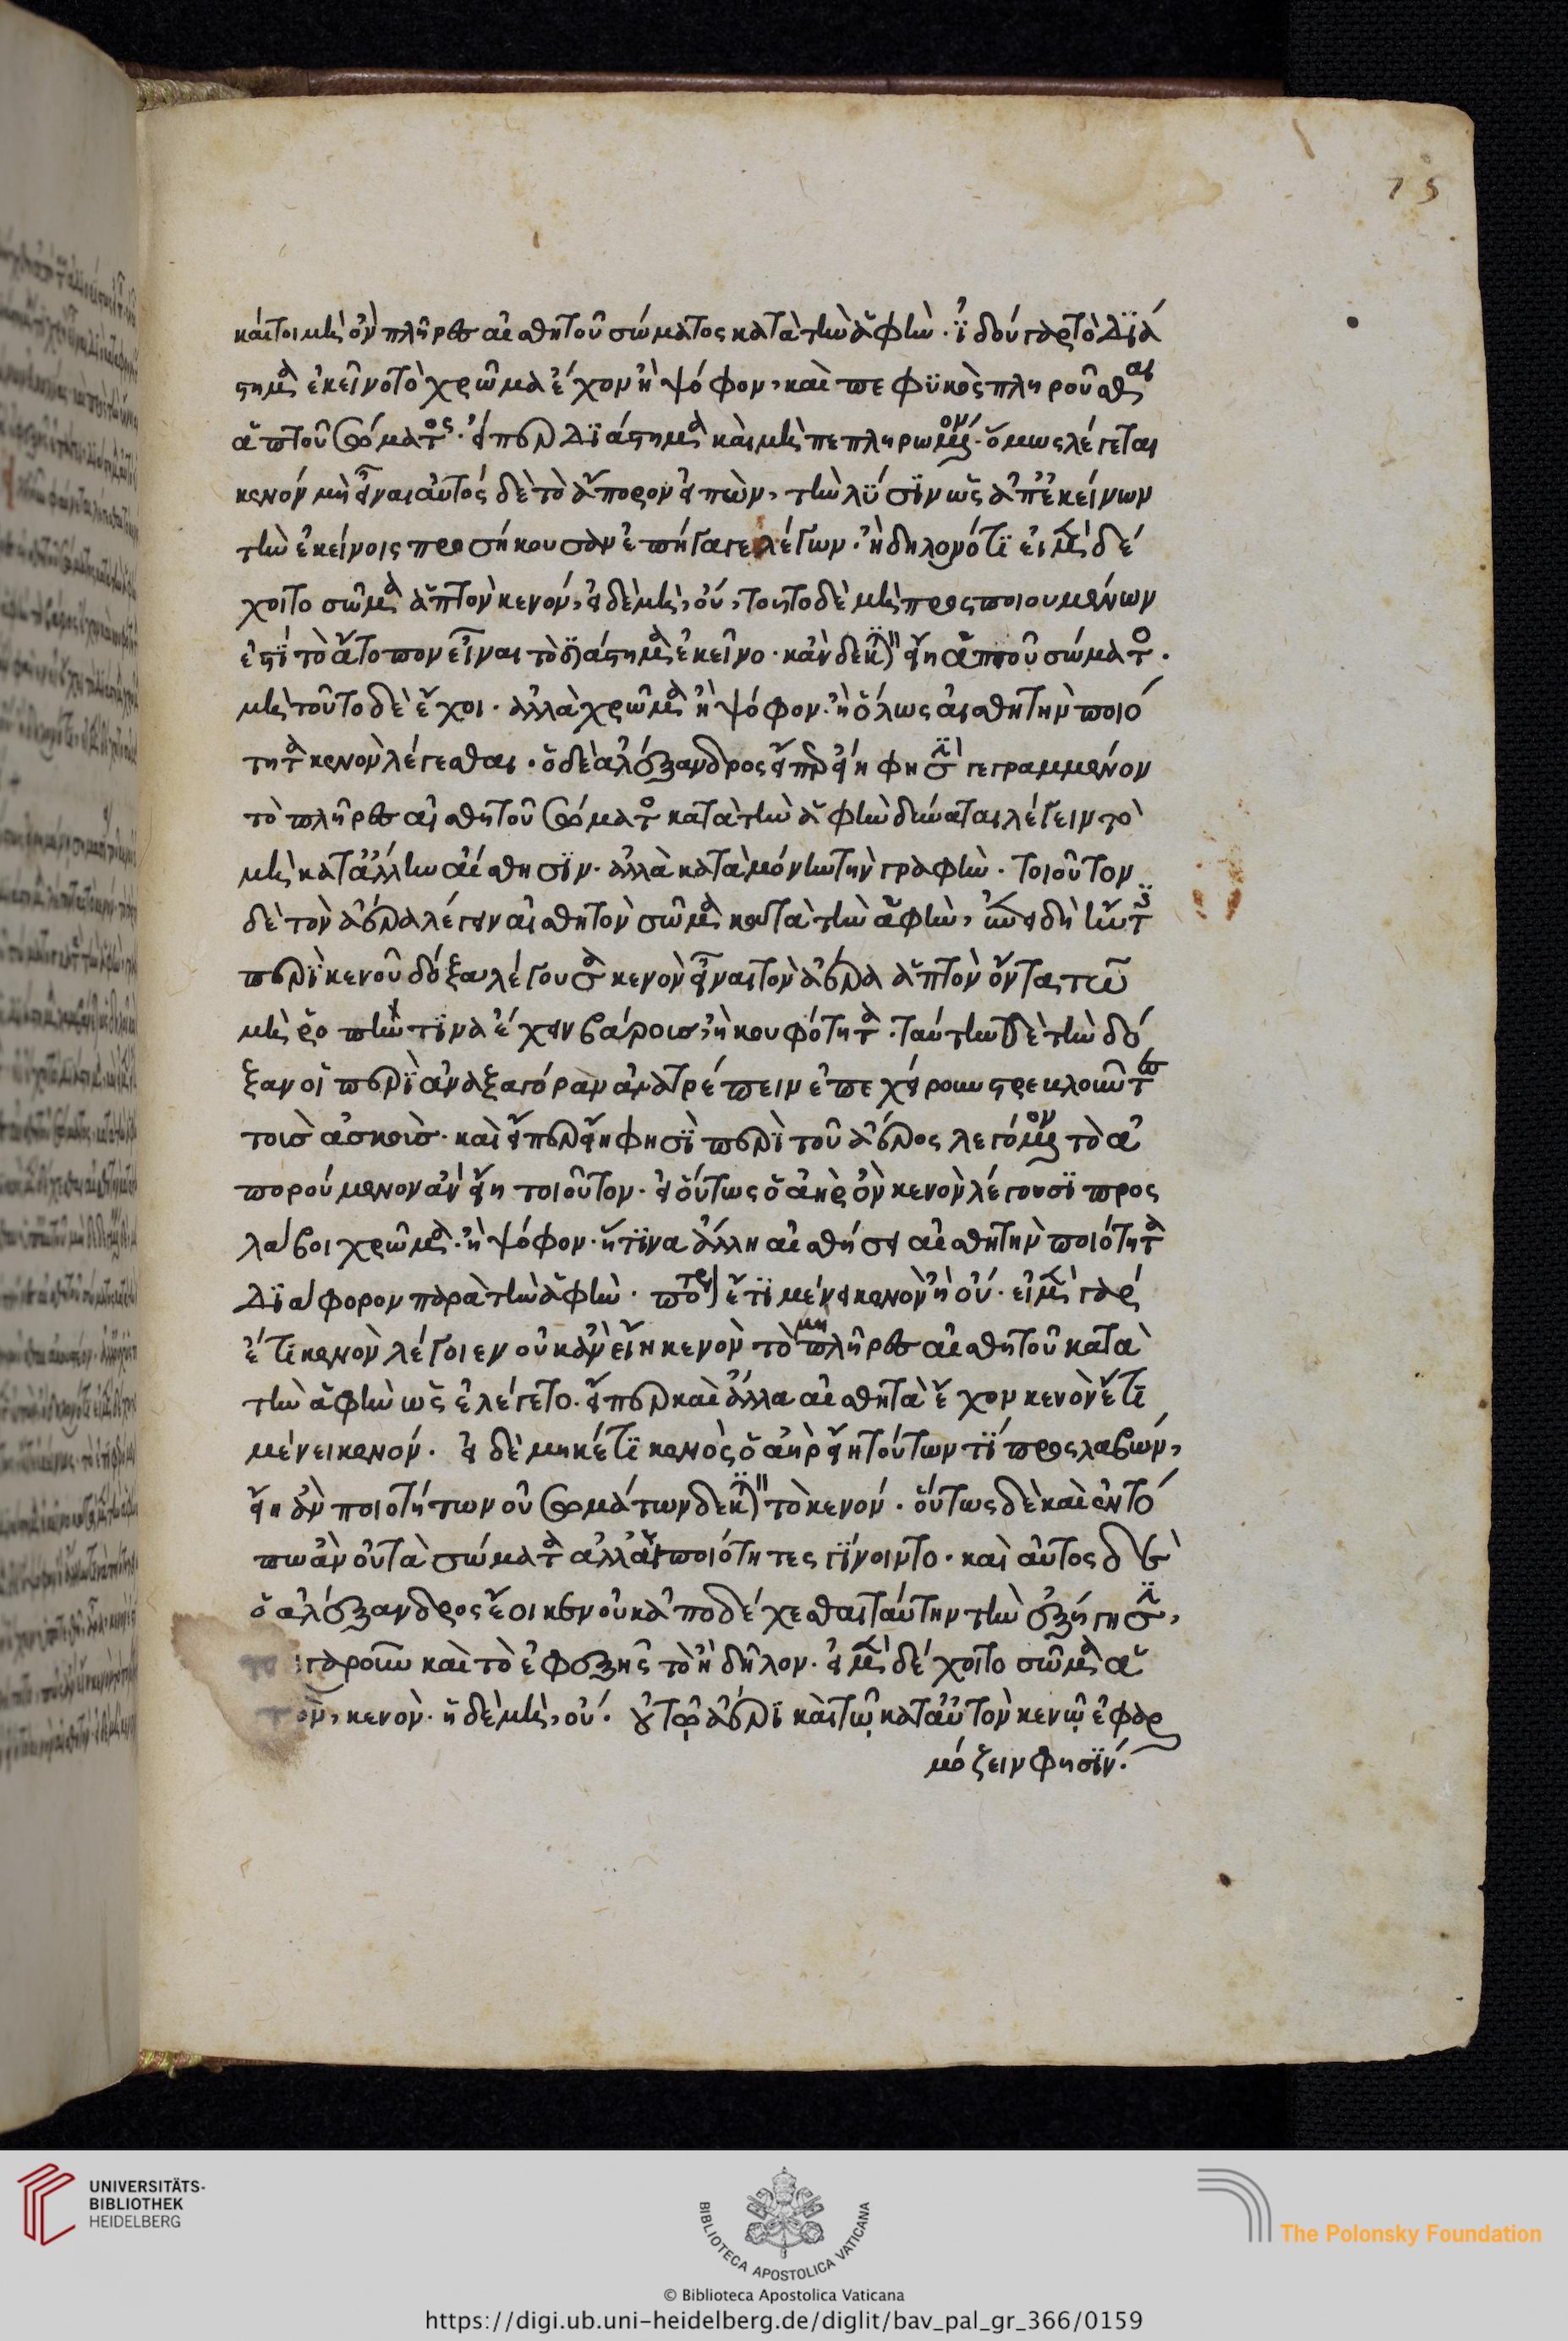 75
καίτοι μὴ ὂν πλῆρες αἰσθητοῦ σώματος κατὰ τὴν ἁφὴν. ἰδοὺ γὰρ τὸ διά
στημα ἐκεῖνο τὸ χρῶμα ἔχον ἢ ψόφον, καὶ πεφυκὸς πληροῦσθαι
ἁπτοῦ σώματος. εἴπερ διάστημα καὶ μὴ πεπληρωμένον. ὅμως λέγεται
κενόν μὴ εἶναι αὐτὸς δὲ τὸ ἄπορον εἰπὼν, τὴν λύσιν ὡς ἀπ' ἐκείνων
τὴν ἐκείνοις προσήκουσαν ἐπήγαγε λέγων. ἢ δηλονότι εἰ μὲν δέ
χοιτο σῶμα ἁπτὸν κενόν, εἰ δὲ μὴ, οὔ, τοῦτο δὲ μὴ προσποιουμένων
ἐστὶ τὸ ἄτοπον εἶναι τὸ διάστημα ἐκεῖνο. κἂν δεκτικὸν εἴη ἁπτοῦ σώματος.
μὴ τοῦτο δὲ ἔχοι. ἀλλὰ χρῶμα ἢ ψόφον. ἢ ὅλως αἰσθητὴν ποιό
τητα κενὸν λέγεσθαι. ὁ δὲ ἀλέξανδρος εἴπερ εἴη φησὶ γεγραμμένον
τὸ πλῆρες αἰσθητοῦ σώματος κατὰ τὴν ἁφὴν δύναται λέγειν τὸ
μὴ κατ' ἄλλην αἴσθησιν. ἀλλὰ κατὰ μόνην τὴν γραφὴν. τοιοῦτον
δὲ τὸν ἀέρα λέγειν αἰσθητὸν σῶμα κατὰ τὴν ἁφὴν,
περὶ κενοῦ δόξα λέγουσα κενὸν εἶναι τὸν ἀέρα ἁπτὸν ὄντα τῶ
μὴ ῥοπὴν τινα ἔχειν βάροις, ἢ κουφότητα. ταύτην δὲ τὴν δό
ξαν οἱ περὶ ἀναξαγόραν ἀνατρέπειν ἐπεχείρουν στρεβλοῦντες
τοῖς ἀσκοῖς. καὶ εἴπερ εἴη φησὶ περὶ τοῦ ἀέρος λεγόμενον τὸ ἀ
πορούμενον ἂν εἴη τοιοῦτον. εἰ οὕτως ὁ ἀὴρ ὃν κενὸν λέγουσι προς
λάβοι χρῶμα. ἢ ψόφον. ἤ τινα ἄλλη αἰσθήσει αἰσθητὴν ποιότητα
διάφορον παρὰ τὴν ἁφὴν. πότερον ἔτι μένει κενὸν ἢ οὔ. εἰ μὲν γὰρ
ἔτι κενὸν λέγοιεν οὐκ ἂν εἴη κενὸν τὸ μὴ πλῆρες αἰσθητοῦ κατὰ
τὴν ἁφὴν ὡς ἐλέγετο. εἴπερ καὶ ἄλλα αἰσθητὰ ἔχον κενὸν ἔτι
μένει κενόν. εἰ δὲ μηκέτι κενὸς ὁ ἀὴρ εἴη τούτων τί προσλαβών,
εἴη ἂν ποιοτήτων οὐ σωμάτων δεκτικὸν τὸ κενόν. οὕτως δὲ καὶ ἐν τό
πω ἂν οὐ τὰ σώματα ἀλλ' αἱ ποιότητες γίνοιντο. καὶ αὐτὸς δὲ
ὁ ἀλέξανδρος ἔοικεν οὐκ ἀποδέχεσθαι ταύτην τὴν ἐξήγησιν,
γὰρ οὖν καὶ τὸ ἐφεξῆς τὸ ἢ δῆλον. εἰ μὲν δέχοιτο σῶμα ἁ
τὸν, κενὸν. εἰ δὲ μὴ, οὔ. οὐ τῷ ἀέρι καὶ τῷ κατ' αὐτὸν κενῷ ἐφαρ
μόζειν φησίν.
UNIVERSITÄTS-
BIBLIOTHEK
HEIDELBERG
BIBLIOTECA APOSTOLICA VATICANA
The Polonsky Foundation
© Biblioteca Apostolica Vaticana
https://digi.ub.uni-heidelberg.de/diglit/bav_pal_gr_366/0159